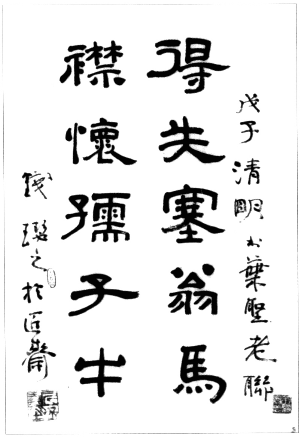 戊子清明书葉聖老聯
得失塞翁馬
襟懷孺子牛
錢璱之於匡齋